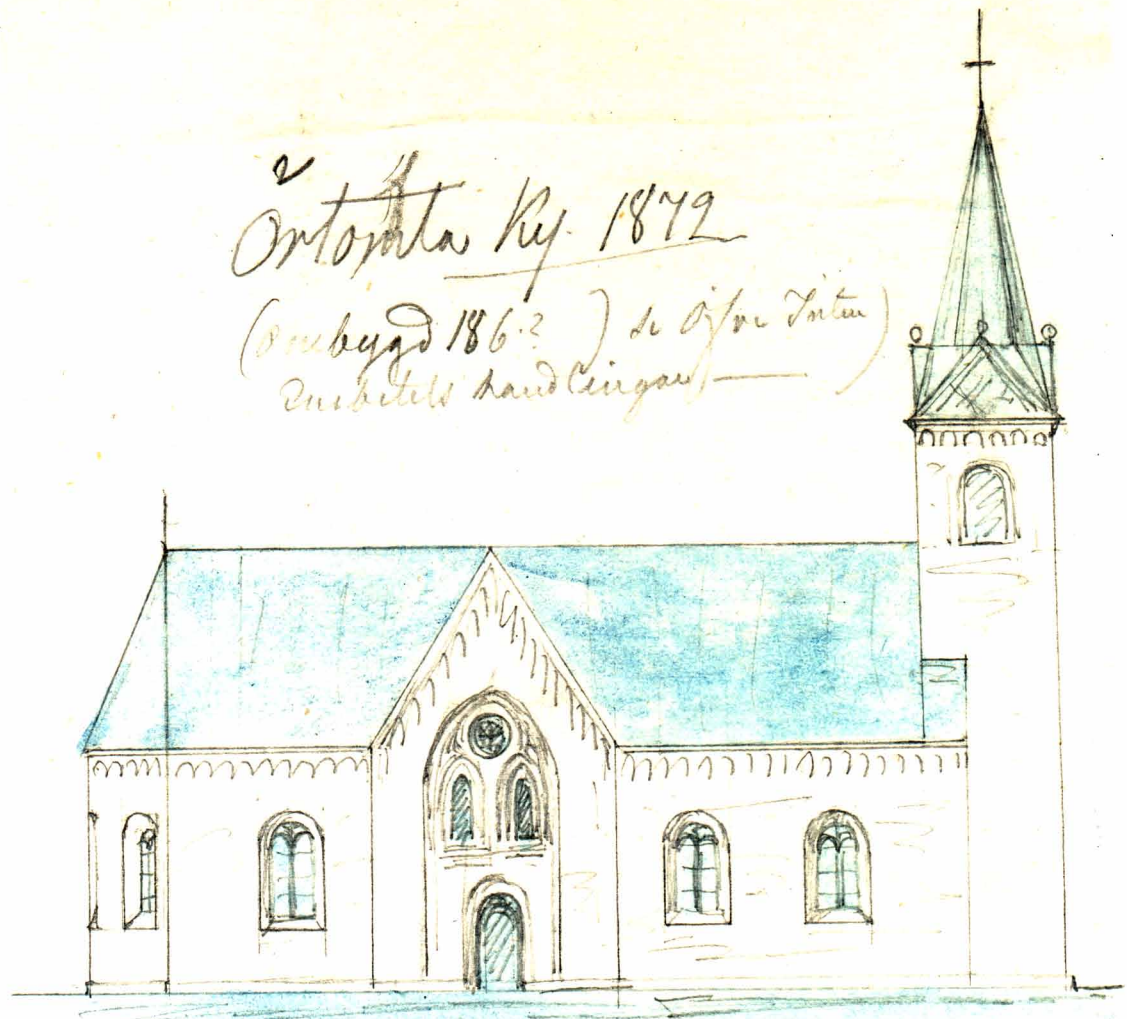 Örtomta Ky. 1872
(ombygd 186.? ) se Öfver Inten
Embetets handlingar —